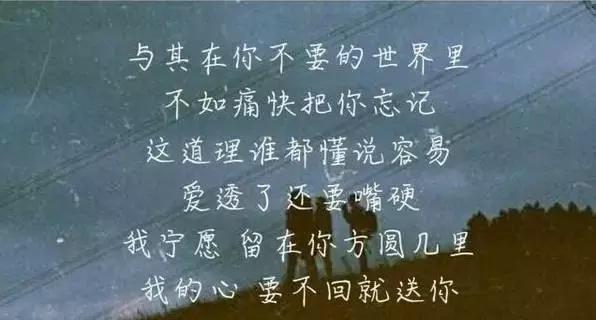 与其在你不要的世界里
不如痛快把你忘记
这道理谁都懂说容易
爱透了还要嘴硬
我宁愿 留在你方圆几里
我的心 要不回就送你